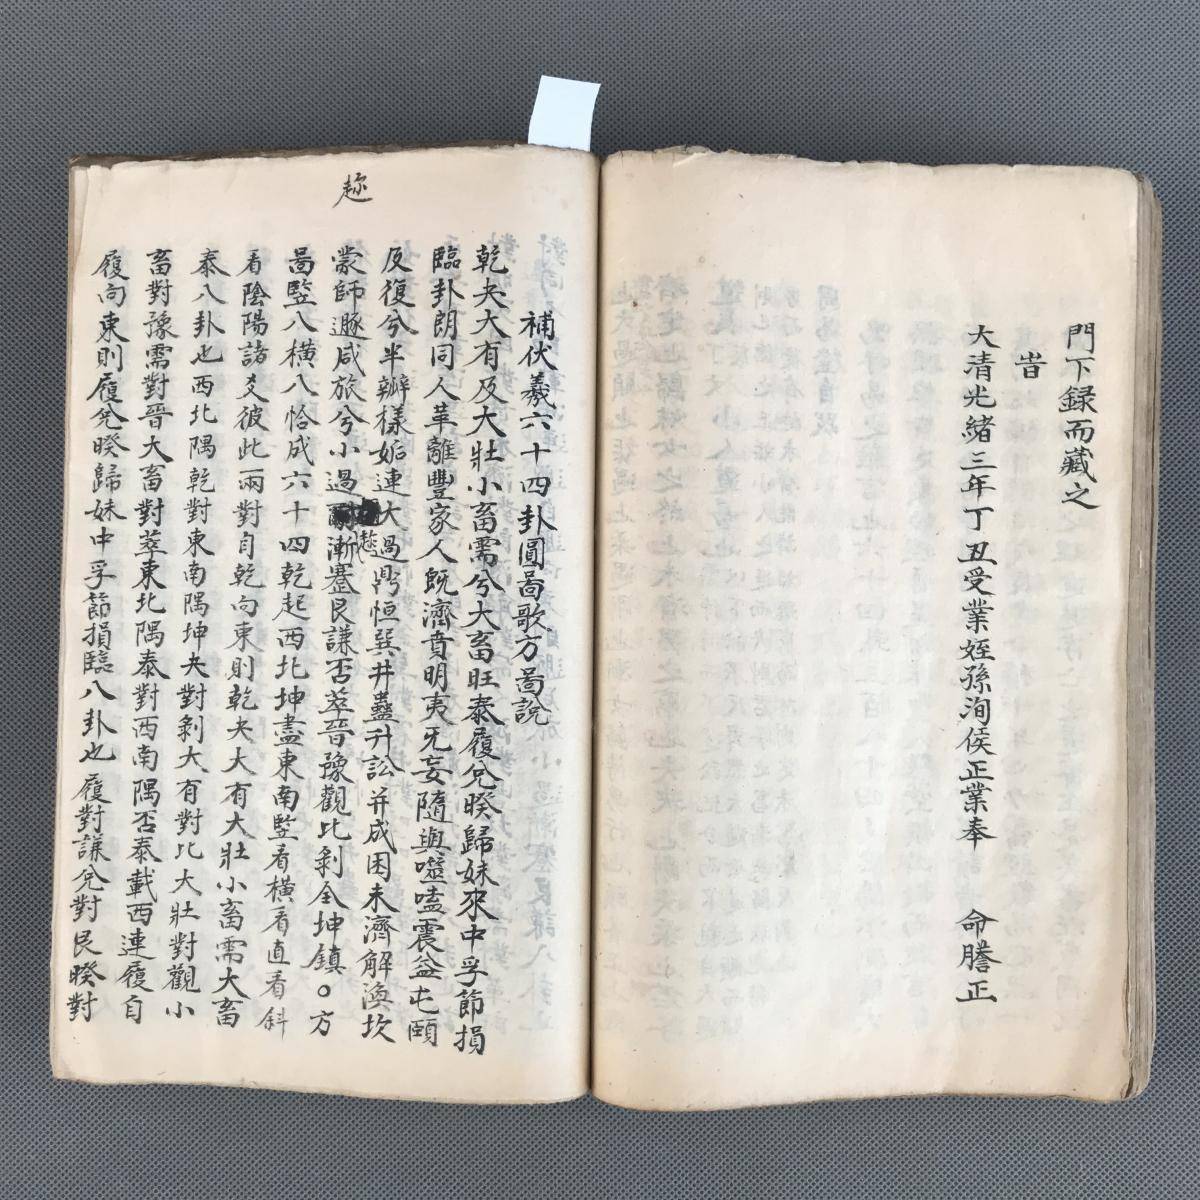 門下録而藏之
旹
大清光緒三年丁丑受業姪孫洵侯正業奉　命謄正
趂
補伏羲六十四卦圓啚歌方啚說
乾夬大有及大壯小畜需兮大畜旺泰履兌睽歸妹來中孚節損
臨卦朗同人革離豐家人既濟賁明夷无妄隨與噬嗑震益屯頤
反復兮半瓣樣姤連大過鼎恒巽井蠱升訟并成困未濟解渙坎
蒙師遯咸旅兮小過漸蹇艮謙否萃晉豫觀比剝全坤鎮。方
啚竪八橫八恰成六十四乾起西北坤盡東南竪看橫看直看斜
看陰陽諸爻彼此兩對自乾向東則乾夬大有大壯小畜需大畜
泰八卦也西北隅乾對東南隅坤夬對剝大有對比大壯對觀小
畜對豫需對晉大畜對萃東北隅泰對西南隅否泰載西連履自
履向東則履兌睽歸妹中孚節損臨八卦也履對謙兌對艮睽對